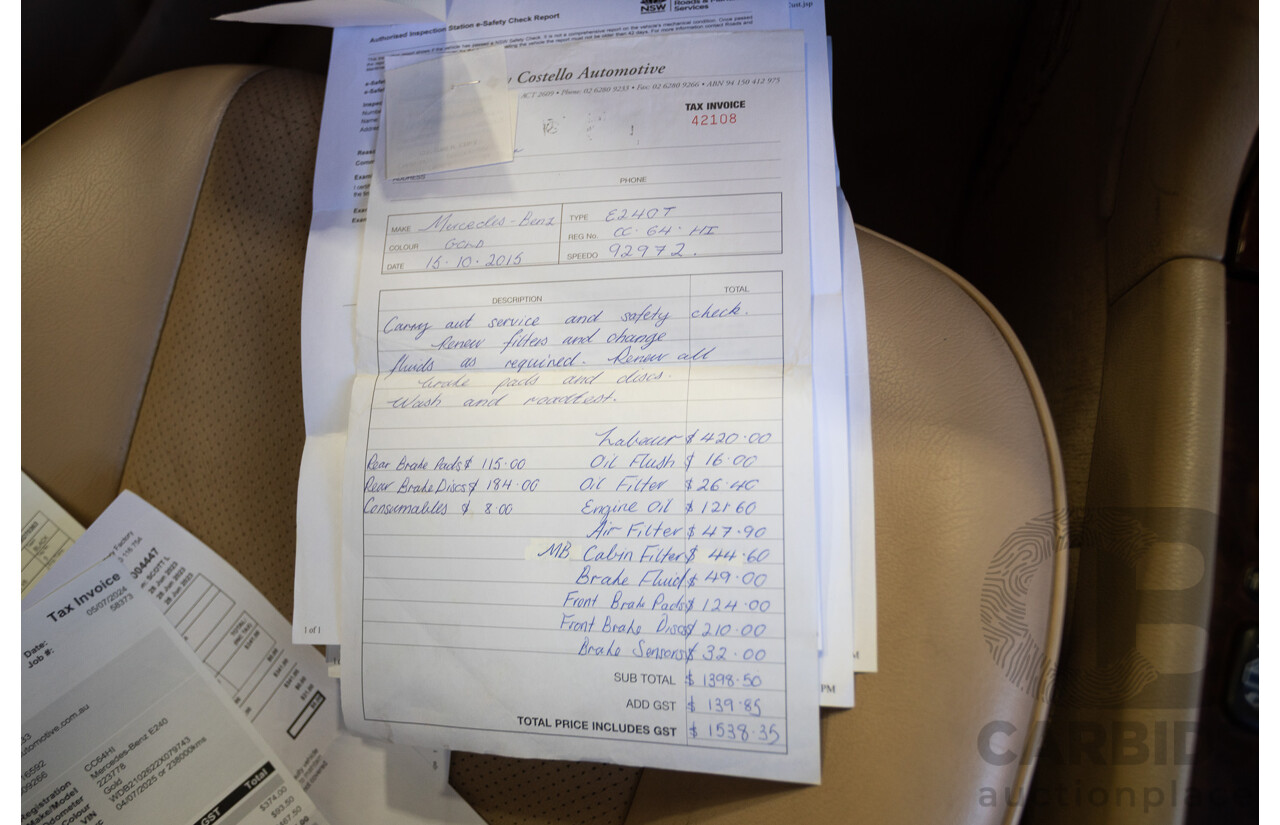 Authorised Inspection Station e-Safety Check Report
NSW
Roads &
Services
Costello Automotive
ACT 2609 • Phone: 02 6280 9233 • Fax: 02 6280 9266 • ABN 94 150 412 975
TAX INVOICE
42108
ADDRESS
PHONE
MAKE Mercedes-Benz TYPE E240T
COLOUR Gold REG No. CC·64·HI
DATE 15·10·2015 SPEEDO 92972.
DESCRIPTION TOTAL
Carry out service and safety check.
Renew filters and change
fluids as required. Renew all
brake pads and discs.
Wash and roadtest.
Labour $ 420·00
Rear Brake Pads $ 115·00 Oil Flush $ 16·00
Rear Brake Discs $ 184·00 Oil Filter $ 26·40
Consumables $ 8·00 Engine Oil $ 121·60
Air Filter $ 47·90
MB Cabin Filter $ 44·60
Brake Fluid $ 49·00
Front Brake Pads $ 124·00
Front Brake Discs $ 210·00
Brake Sensors $ 32·00
SUB TOTAL $ 1398·50
ADD GST $ 139·85
TOTAL PRICE INCLUDES GST $ 1538·35
1 of 1
PM
Tax Invoice
Date: 05/07/2024
Job #: 58373
004447
28 Jun 2023
28 Jun 2023
TOTAL
automotive.com.au
Registration CC64HI
Make/Model Mercedes-Benz E240
Odometer 223778
Colour Gold
VIN WDB2102622X079743
04/07/2025 or 238000kms
GST Total
$374.00
$93.50
CARBIDS
auctionplace